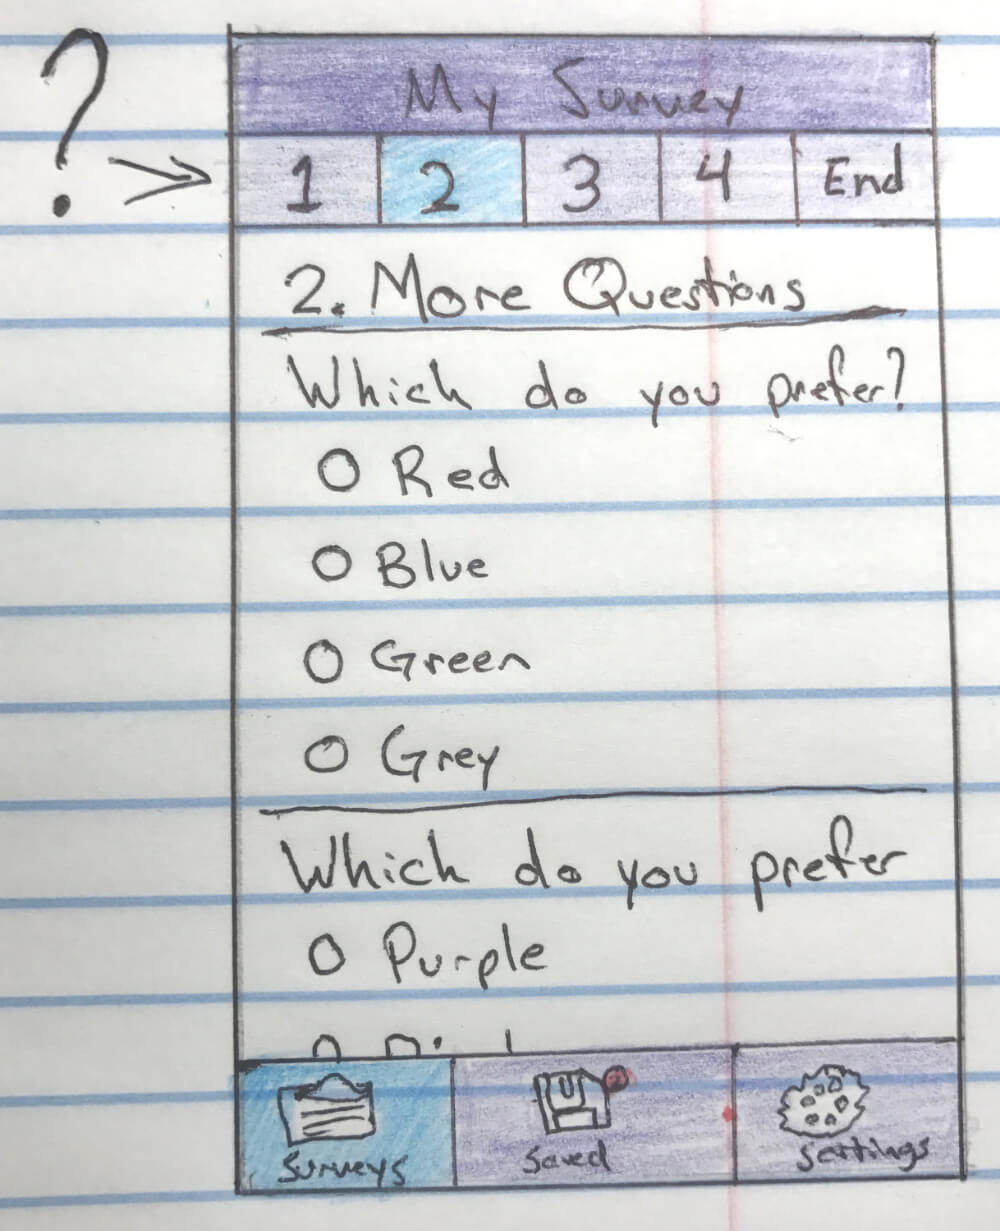 ?
My Survey
1 2 3 4 End
2. More Questions
Which do you prefer?
Red
Blue
Green
Grey
Which do you prefer
Purple
Surveys Saved Settings